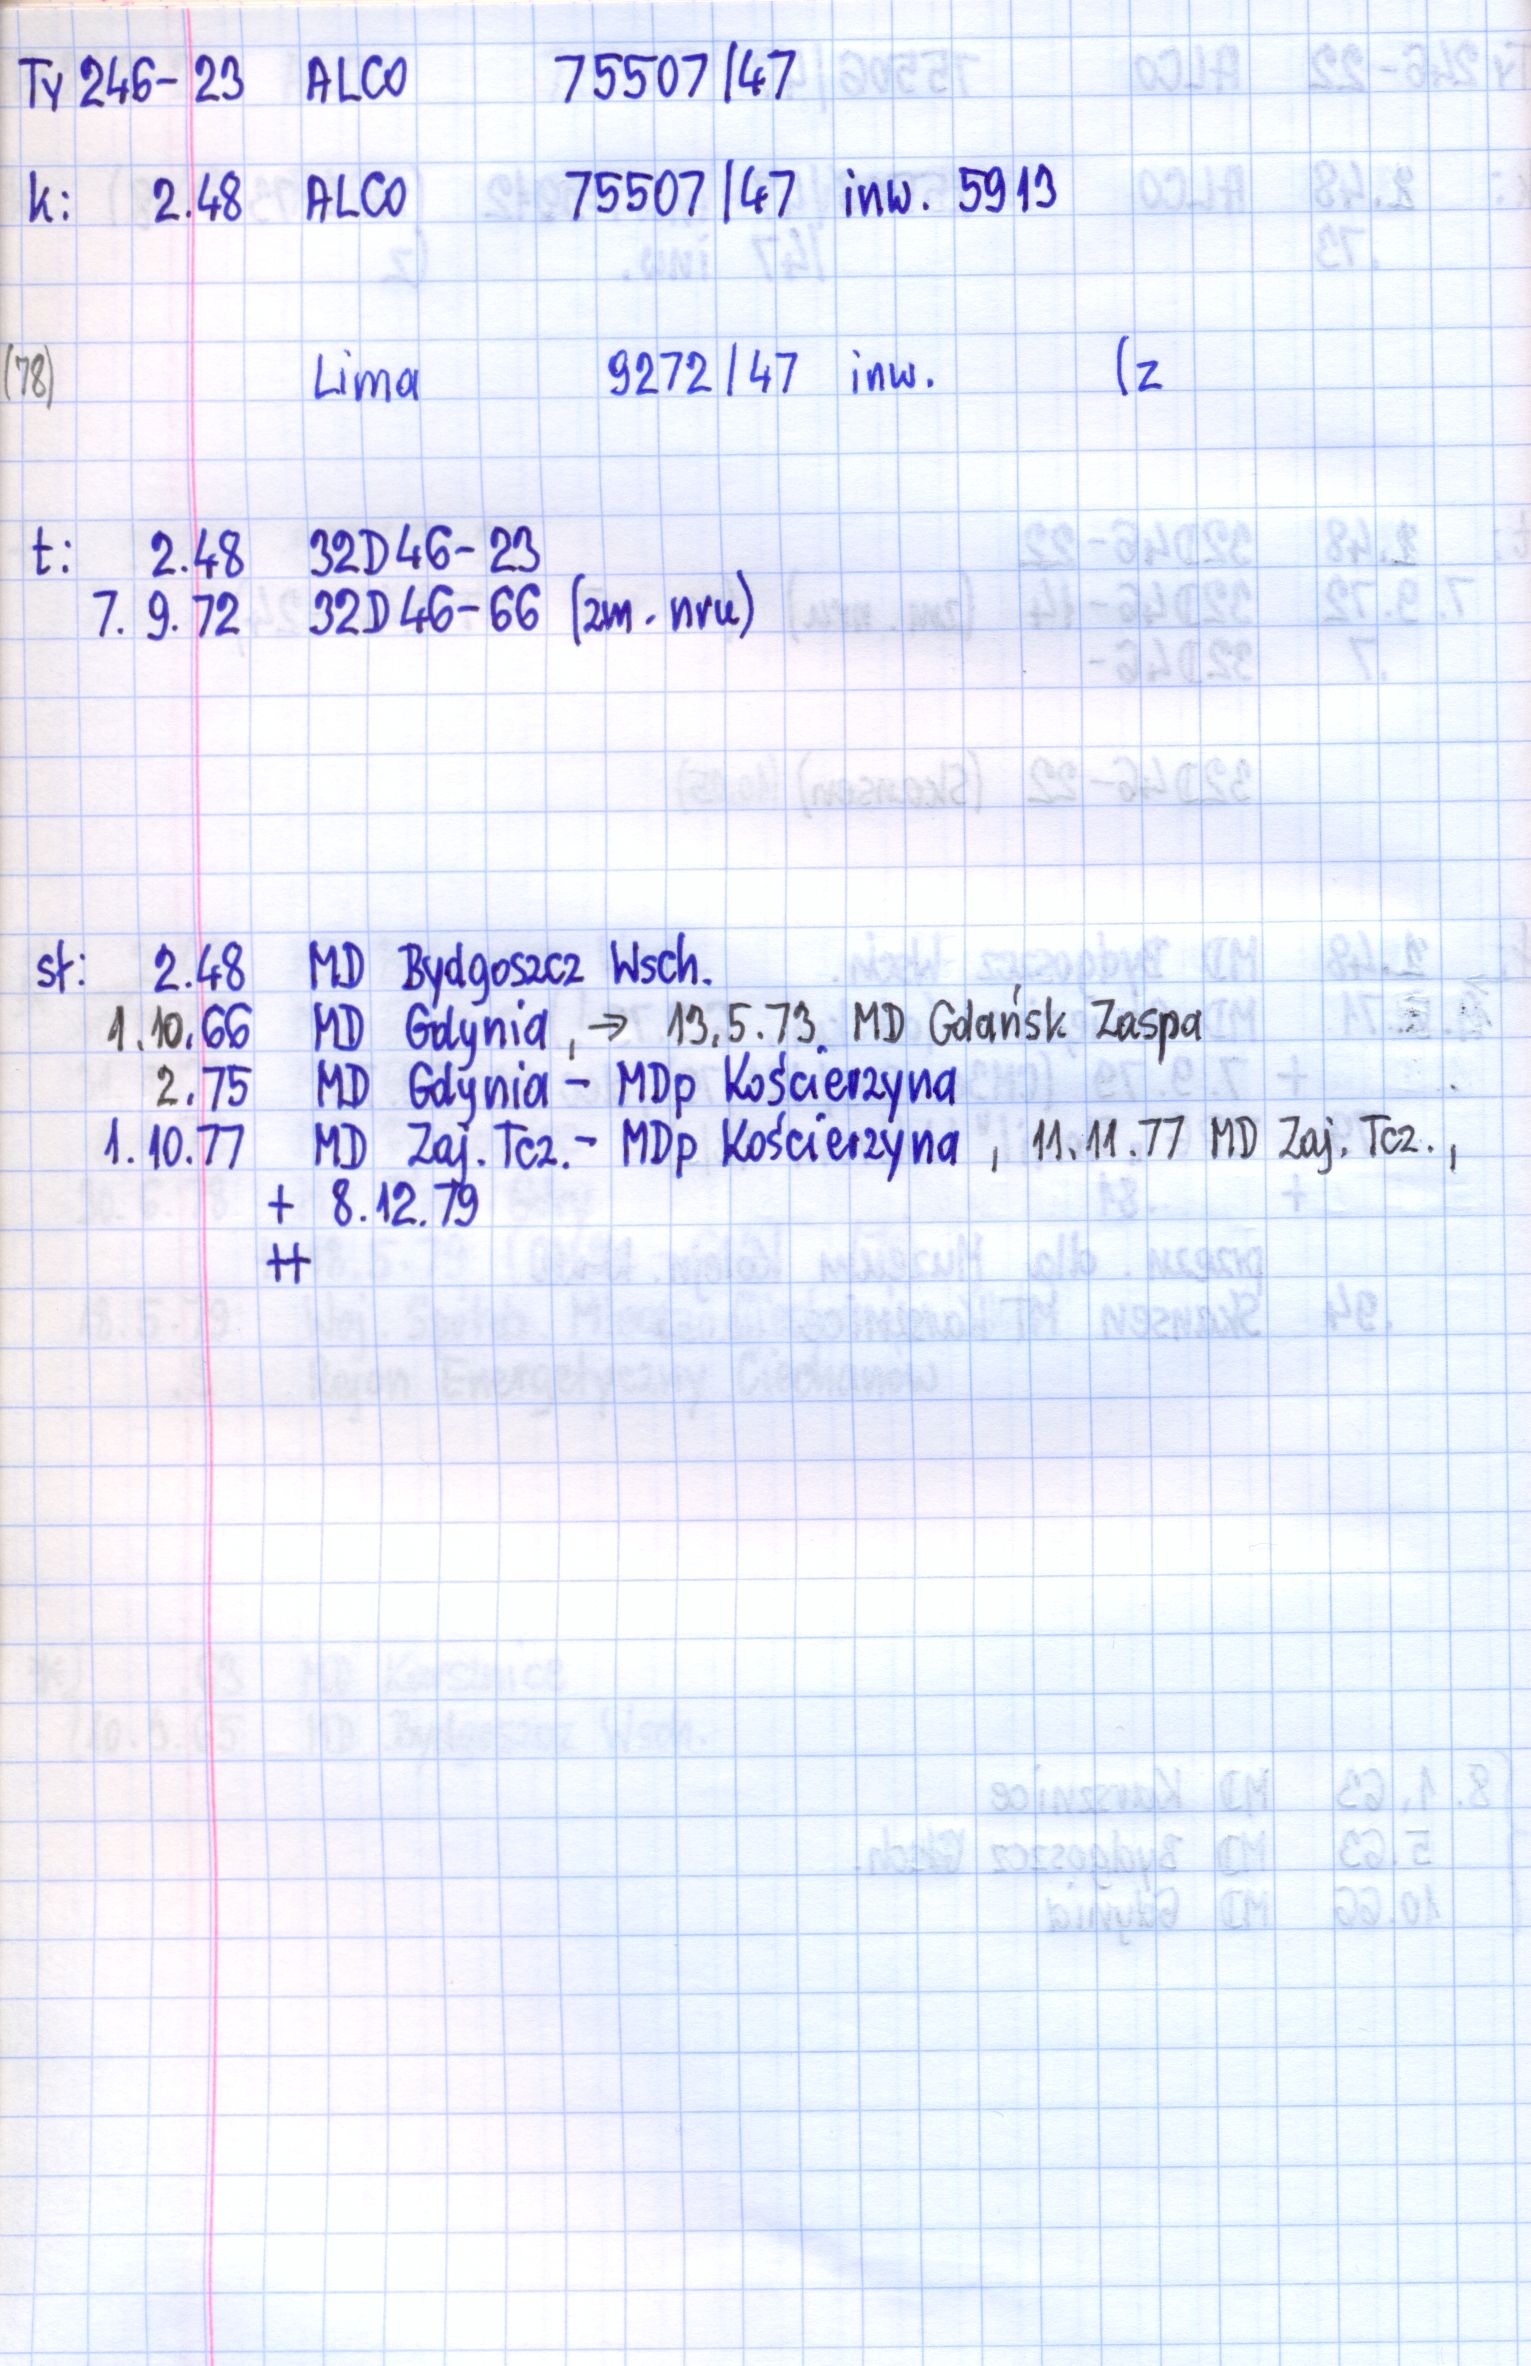 Ty 246-23 ALCO 75507/47
k: 2.48 ALCO 75507/47 inw. 5913
(78) Lima 9272/47 inw. (z
t: 2.48 32D46-23
7.9.72 32D46-66 (zm. nru)
st: 2.48 MD Bydgoszcz Wsch.
1.10.66 MD Gdynia, → 13.5.73. MD Gdańsk Zaspa
2.75 MD Gdynia - MDp Kościerzyna
1.10.77 MD Zaj. Tcz. - MDp Kościerzyna, 11.11.77 MD Zaj. Tcz.,
+ 8.12.79
++